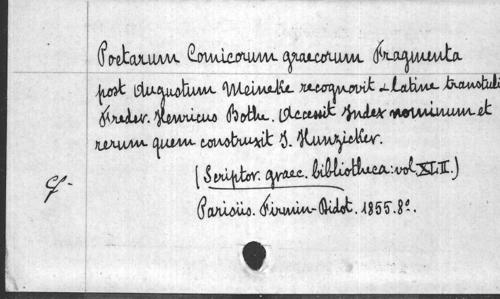 Poetarum Comicorum graecorum Fragmenta
post Augustum Meineke recognovit & latine transtuli
Freder. Henricus Bothe. Accessit Index nominum et
rerum quem construxit I. Hunzicker.
(Scriptor. graec. bibliotheca: vol. XLII.)
cf-
Parisiis. Firmin-Didot. 1855. 8°.